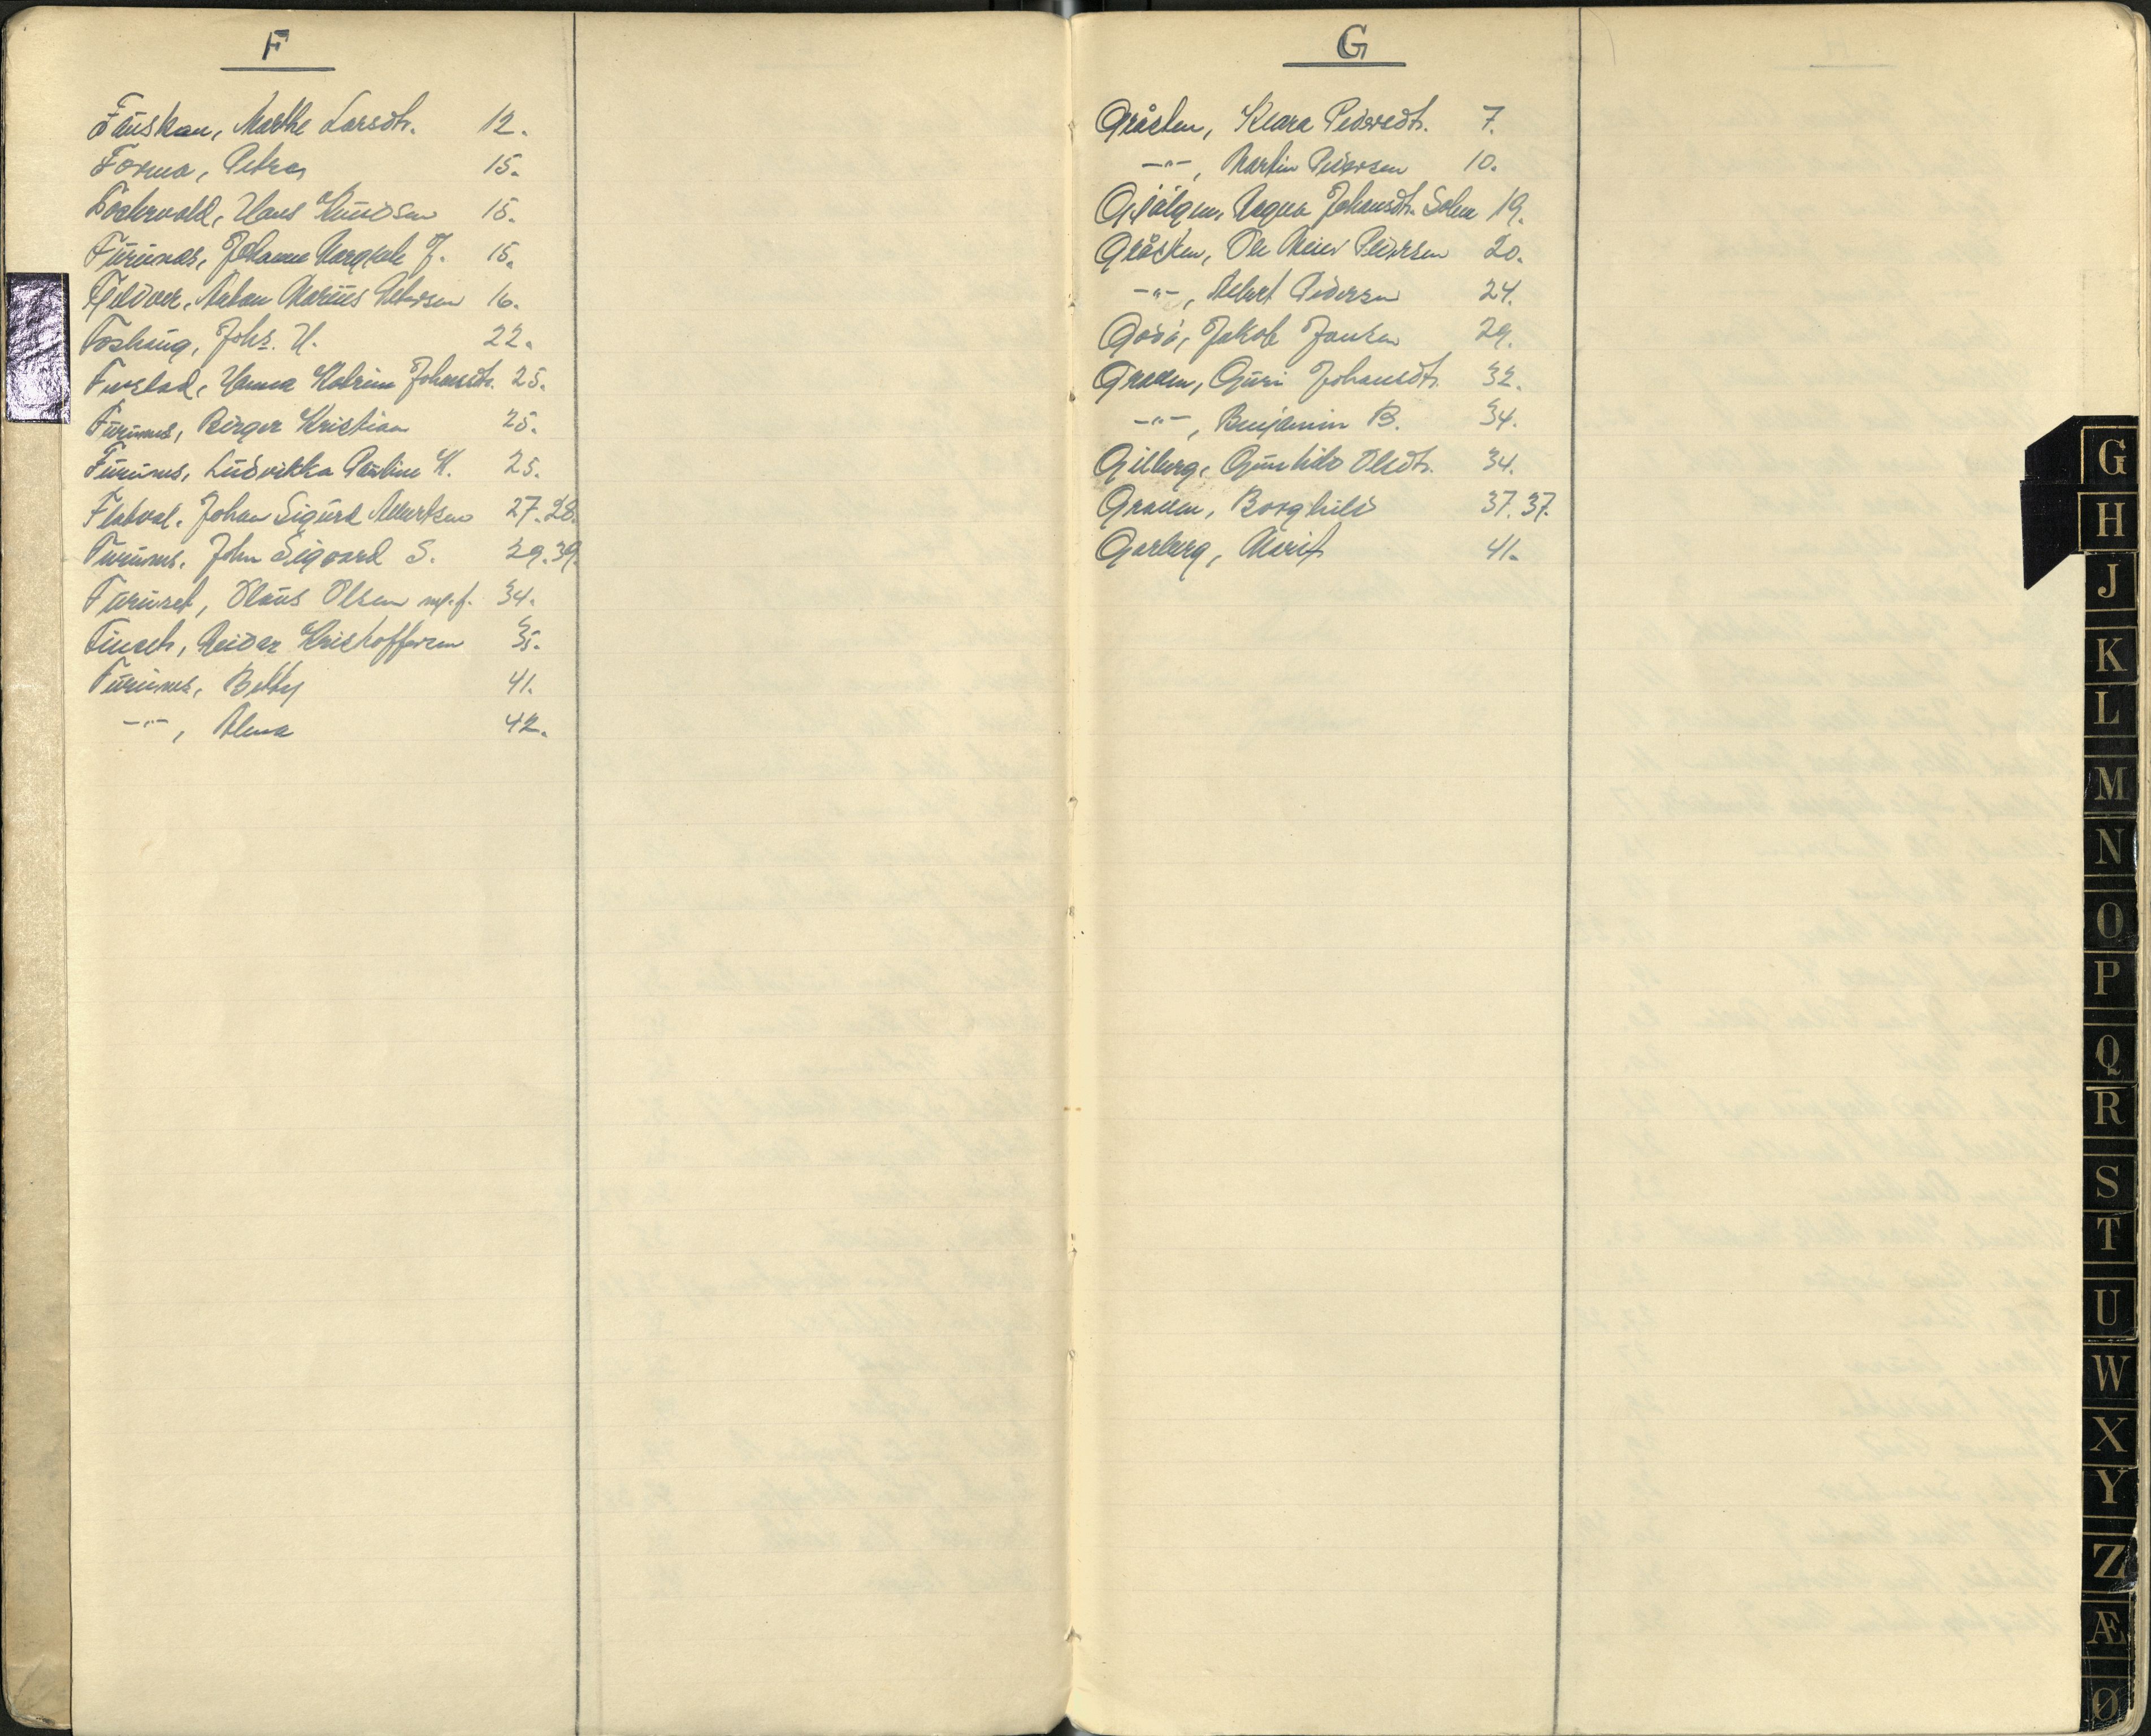 F
Fauskan, Marthe Larsdtr. 12.
Forma, Petra 15.
Fostervold, Hans Knudsen 15.
Furunes, Johanne Margrete J. 15.
Fjeldvær, Anton Marius 16.
Foshaug, Johs. H. 22.
Furstad, Hanna Katrine Johansdtr. 25.
Furunes, Birger Kristian 25.
Furunes, Ludvikka Pauline K. 25.
Flatval, Johan Sigurd Albertsen 27. 28.
Furunes, John Sigvard S. 29. 39.
Furuset, Olaus Olsen m.f. 34.
Reidar Kristoffersen 35.
Furunes, Betty 41.
-"-, Alma 42.
G
Gråsten, Klara Pedersdtr. 7.
-"-, Martin Pedersen 10.
Magna Johansdtr. Solem 19.
Gråsten, Ole Meier Pedersen 20.
-"-, Albert Pedersen 24.
Godø, Jakob Jonsen 29.
Graven, Guri Johansdtr. 32.
-"-, Benjamin B. 34.
Gilberg, Gunhild Olsdtr. 34.
Graven, Borghild 37. 37.
Garberg, Marit 41.
G
H
J
K
L
M
N
O
P
Q
R
S
T
U
W
X
Y
Z
Æ
Ø